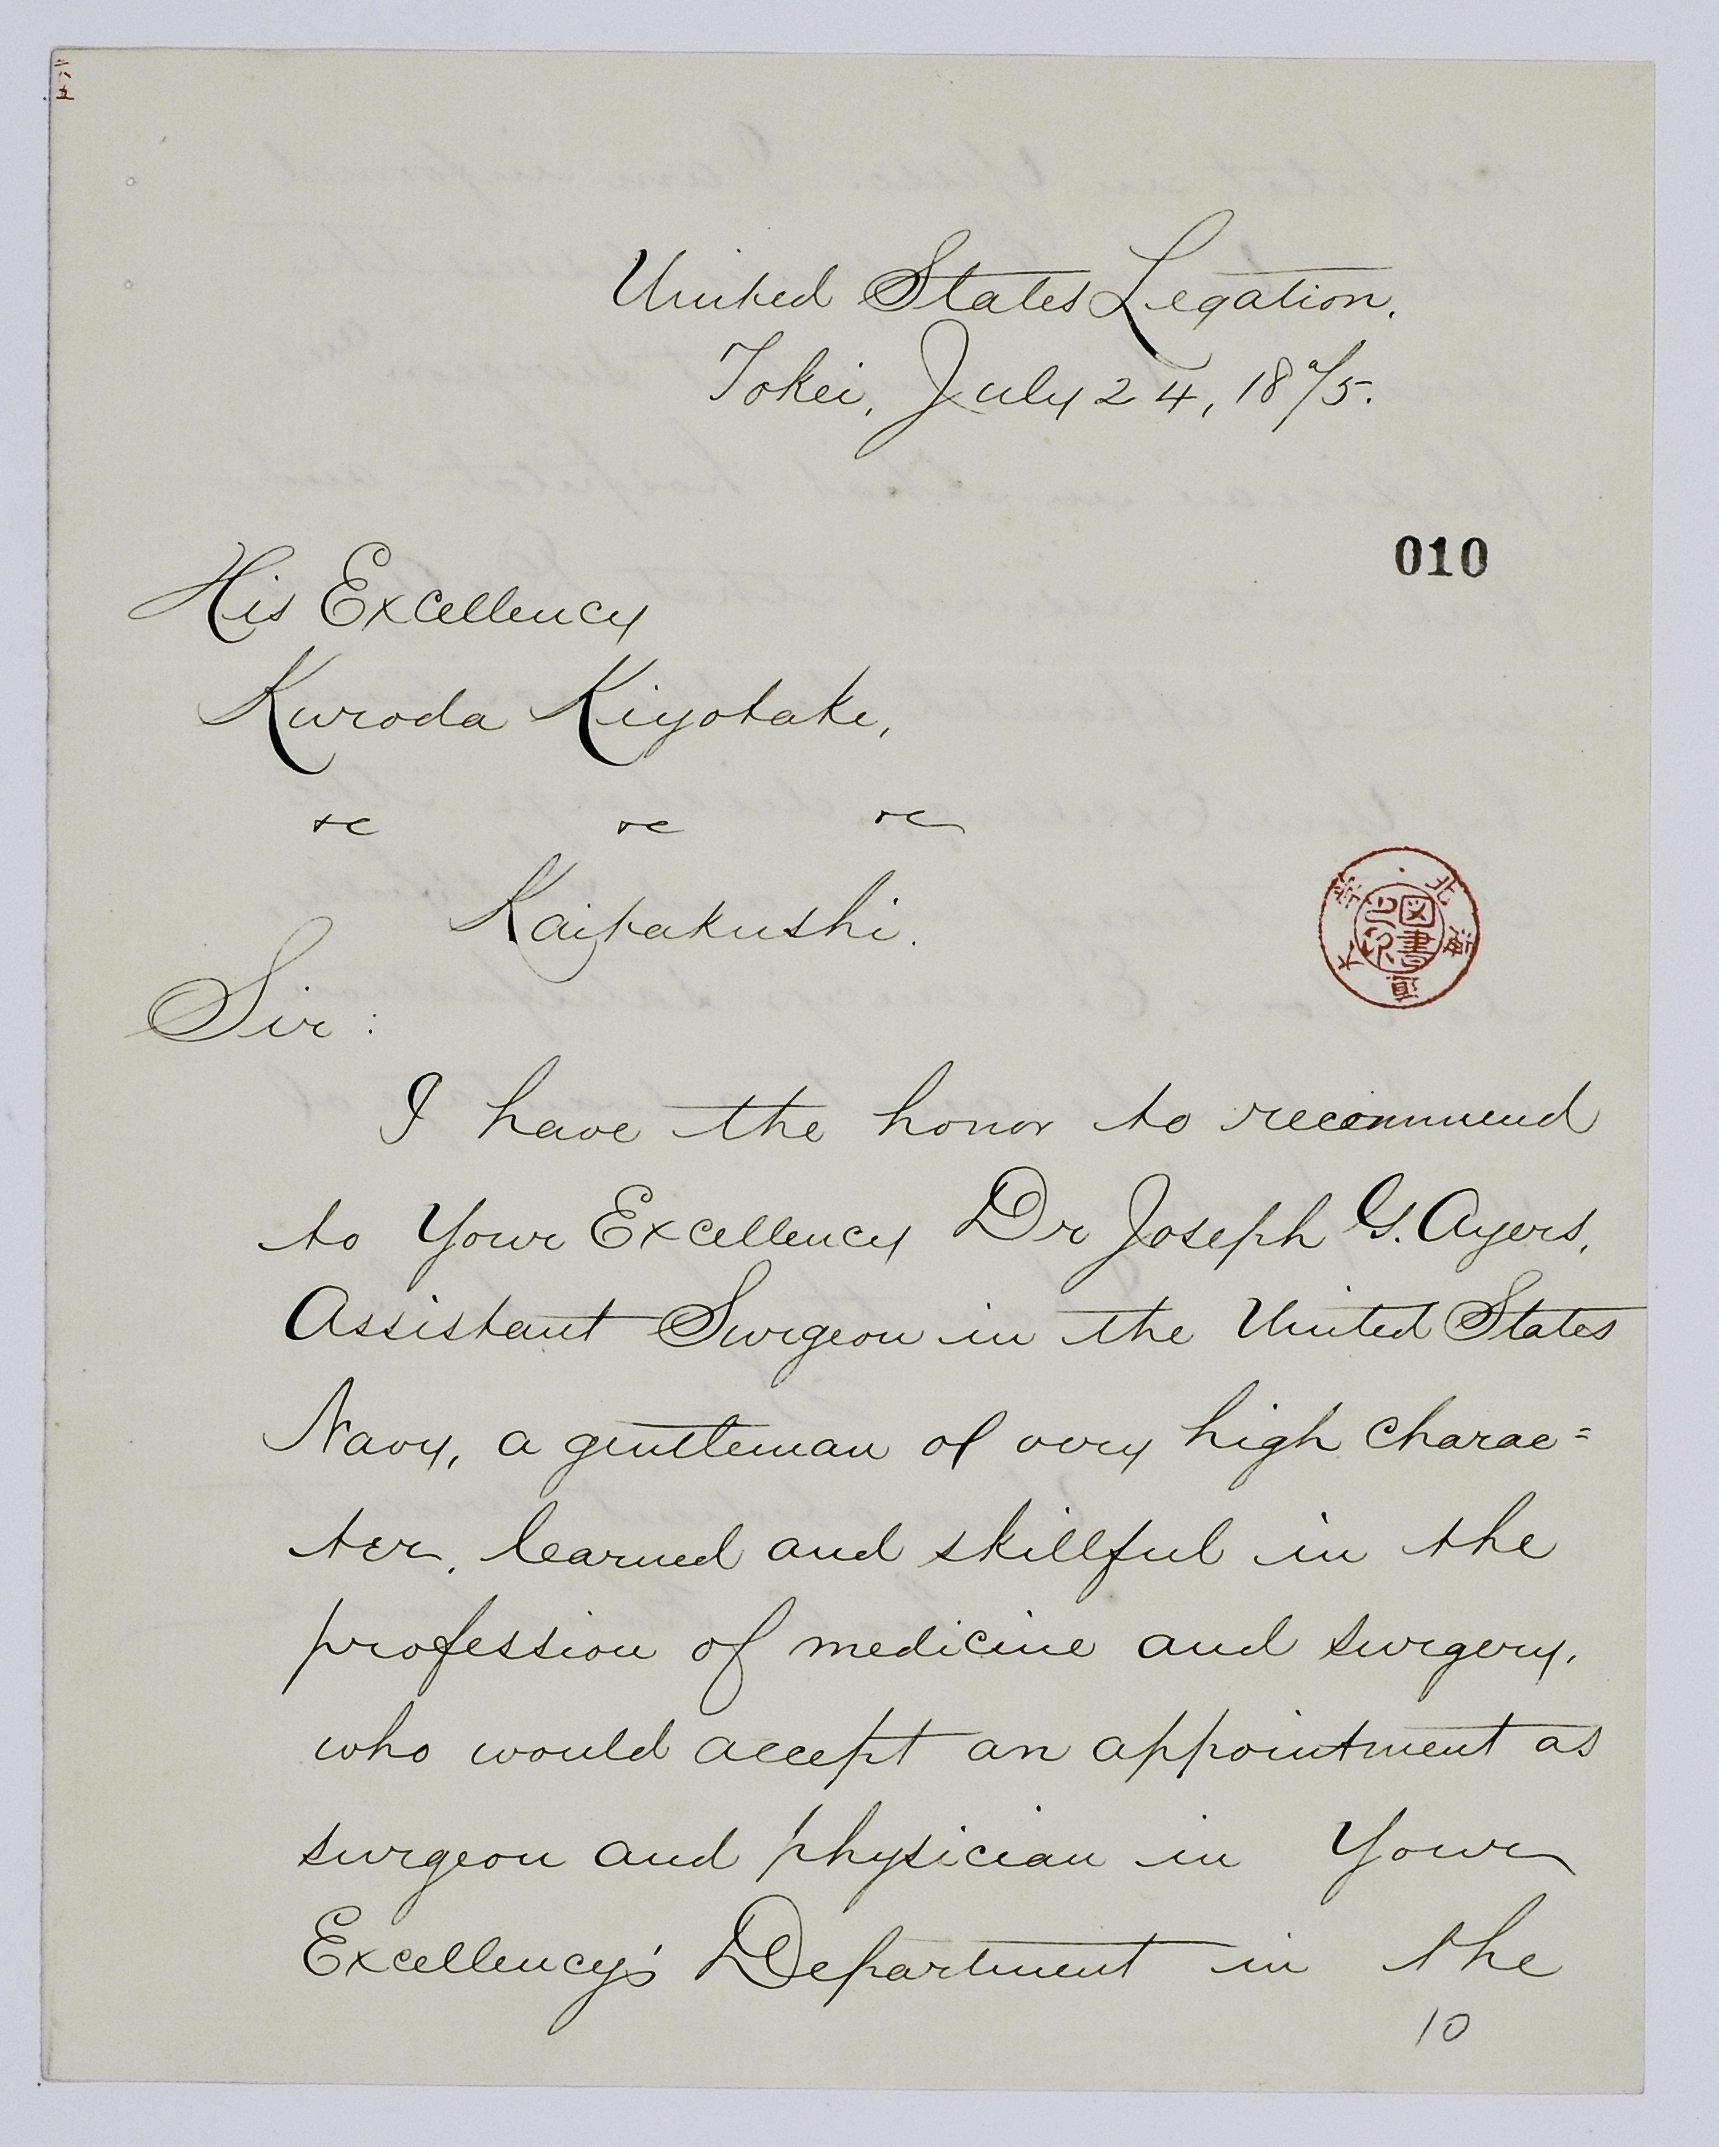 二八五
United States Legation.
Tokei, July 24, 1875.
010
His Excellency
Kuroda Kiyotake,
&c &c &c
Kaitakushi.
北海道大学
図書之印
Sir:
I have the honor to recommend
to Your Excellency Dr Joseph G. Ayers,
Assistant Surgeon in the United States
Navy, a gentleman of very high charac=
ter, learned and skillful in the
profession of medicine and surgery,
who would accept an appointment as
surgeon and physician in Your
Excellency's Department in the
10